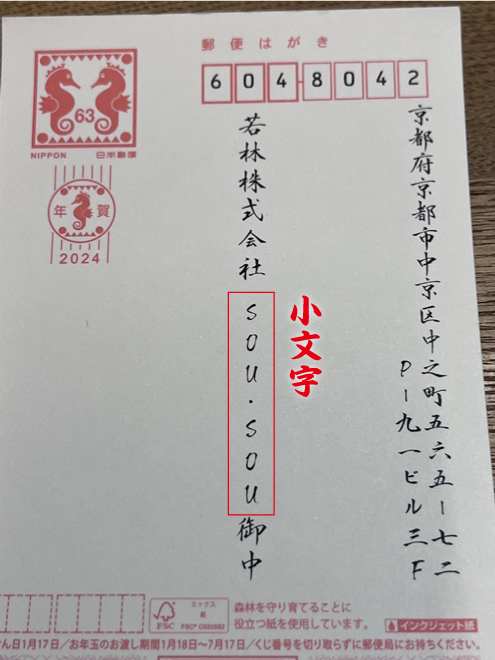 郵便はがき
63
NIPPON 日本郵便
年賀
2024
6048042
京都府京都市中京区中之町五六五ー七二
P-九一ビル三F
若林株式会社 sou・sou 御中
小文字
FSC
ミックス
紙
森林を守り育てることに
役立つ紙を使用しています。
インクジェット紙
日1月17日／お年玉のお渡し期間1月18日～7月17日／くじ番号を切り取らずに郵便局にお持ちください。